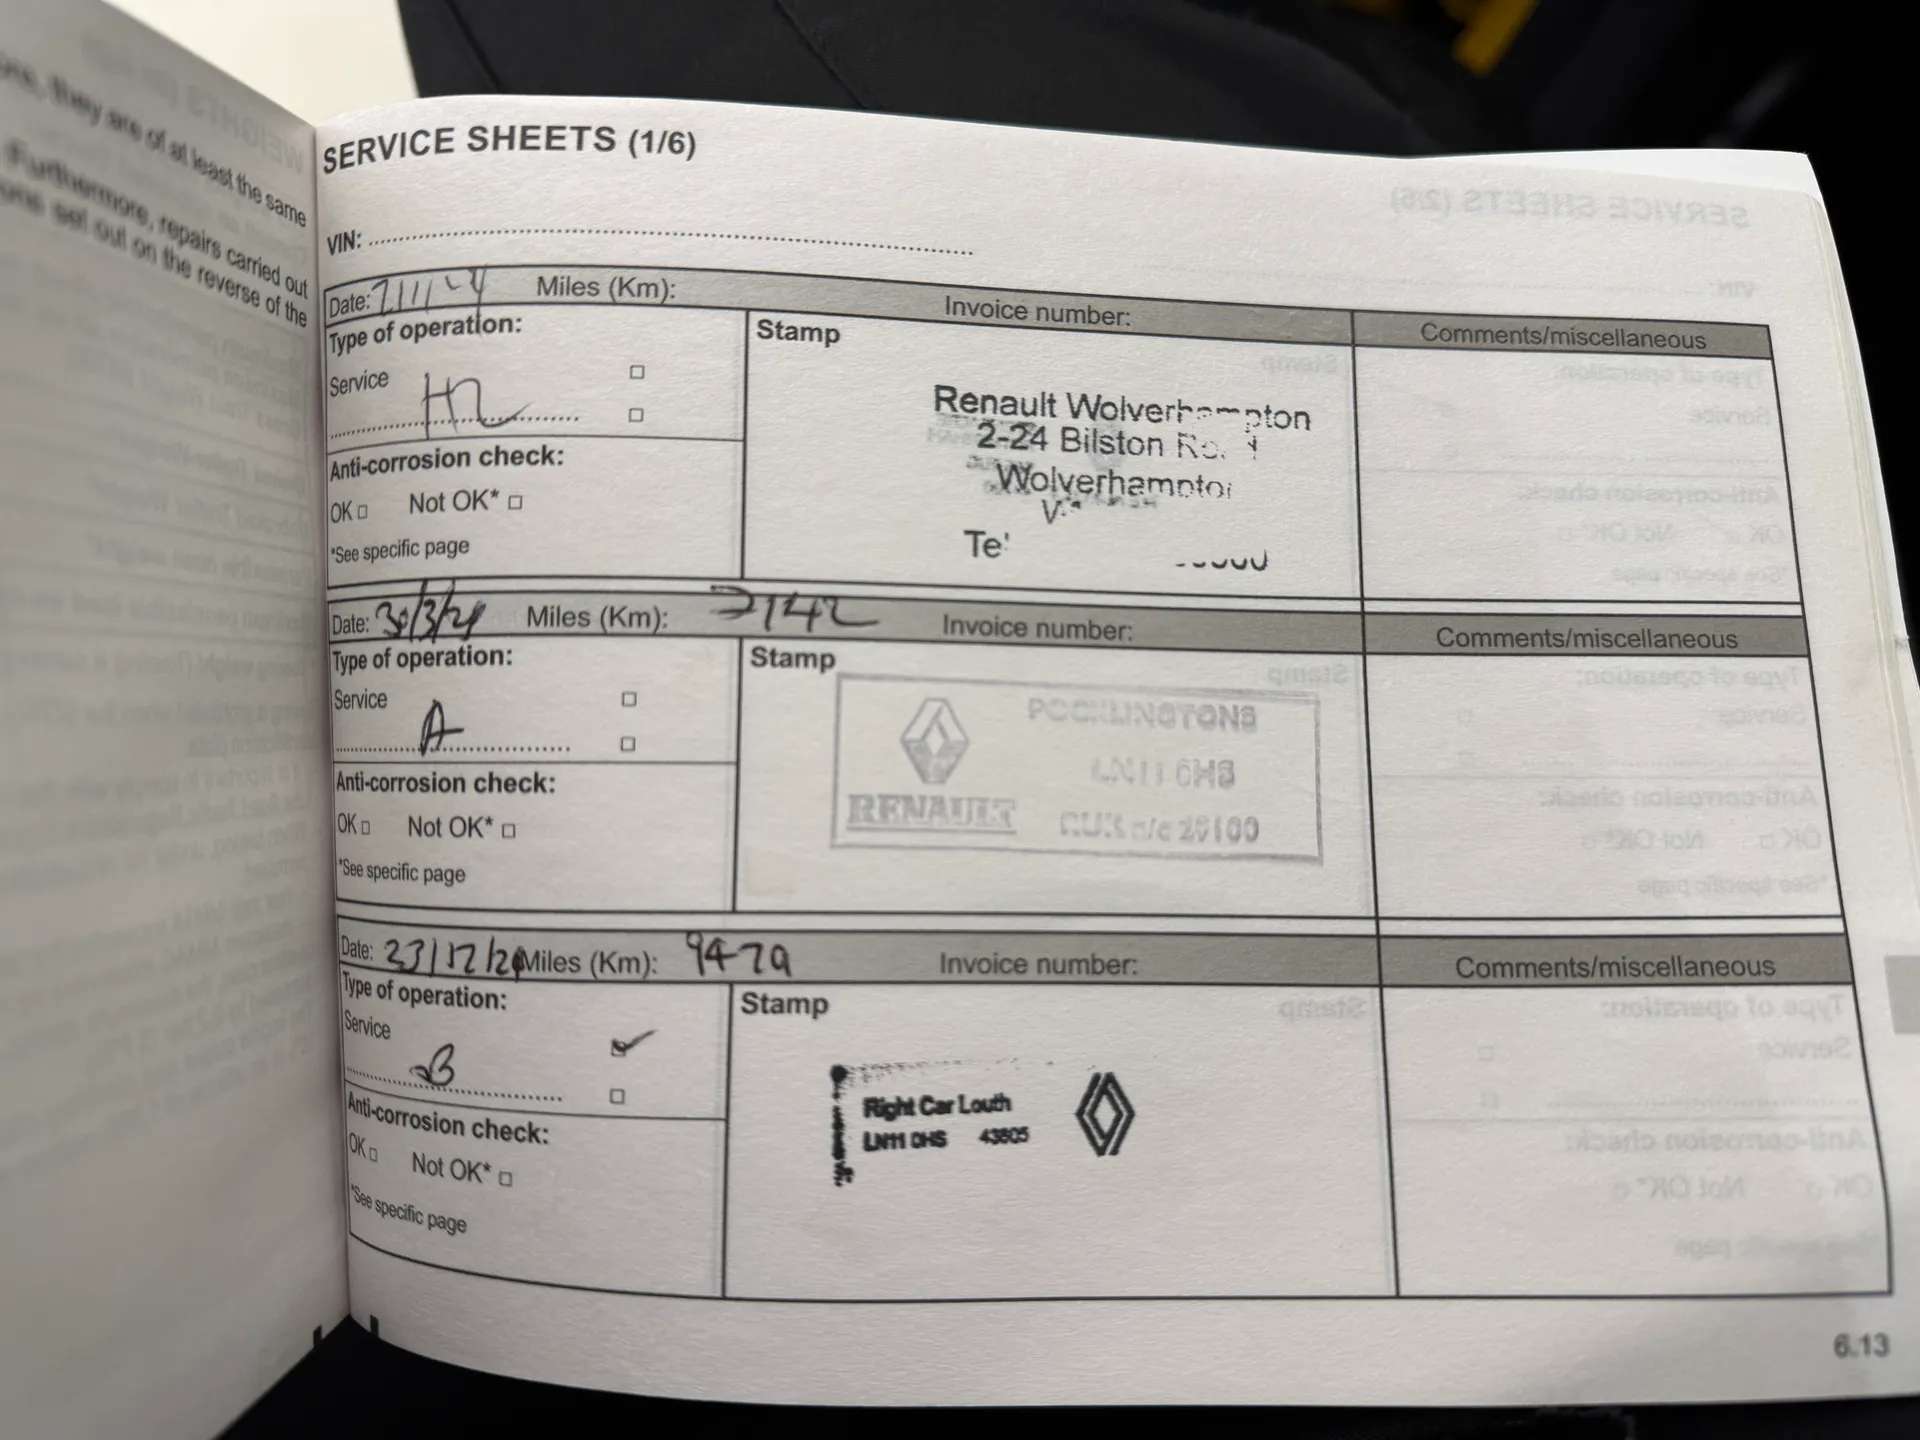 ore, they are of at least the same
Furthermore, repairs carried out
ons set out on the reverse of the
SERVICE SHEETS (1/6)
VIN:
Date: Miles (Km): Invoice number: Comments/miscellaneous
Type of operation:
Service
Stamp
Renault Wolverhampton
2-24 Bilston
Wolverhampton
Anti-corrosion check:
OK Not OK*
*See specific page
Date: 30/3/21 Miles (Km): 7142 Invoice number: Comments/miscellaneous
Type of operation:
Service
A
Stamp
POCKLINGTONS
RENAULT
Anti-corrosion check:
OK Not OK*
*See specific page
Date: 23/12/21 Miles (Km): 9479 Invoice number: Comments/miscellaneous
Type of operation:
Service
B
Stamp
Right Car Louth
LN11 0HS 43805
Anti-corrosion check:
OK Not OK*
*See specific page
6.13